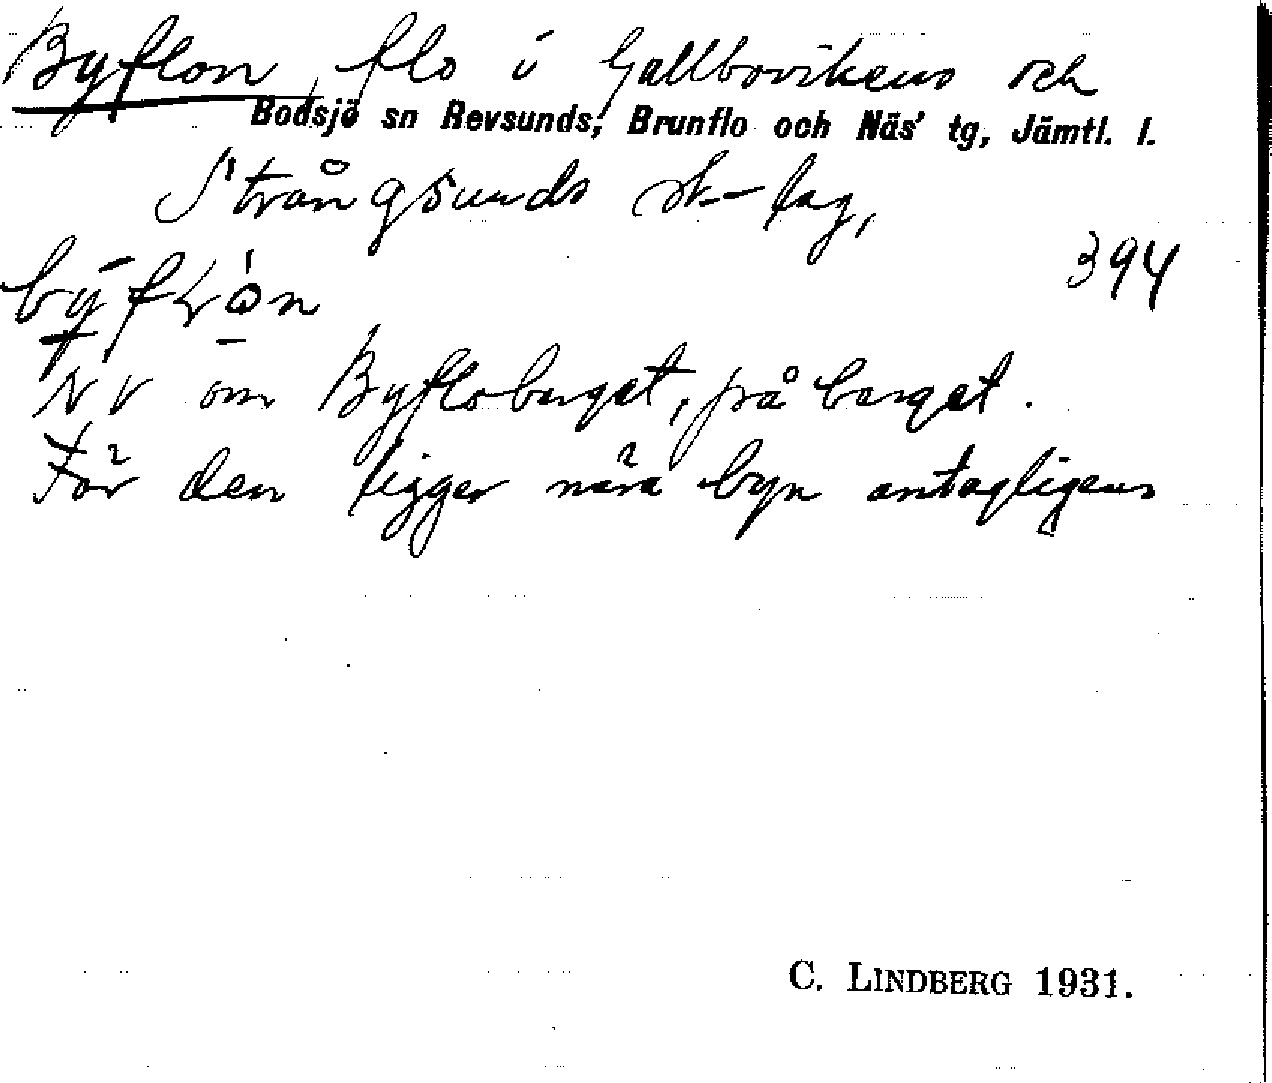 Byflon, flo i Gallbovikens och
Bodsjö sn Revsunds, Brunflo och Näs' tg, Jämtl. l.
Strångsunds sk-lag,
394
NV om Byfloberget, på berget.
För den ligger nära byn antagligen
C. LINDBERG 1931.